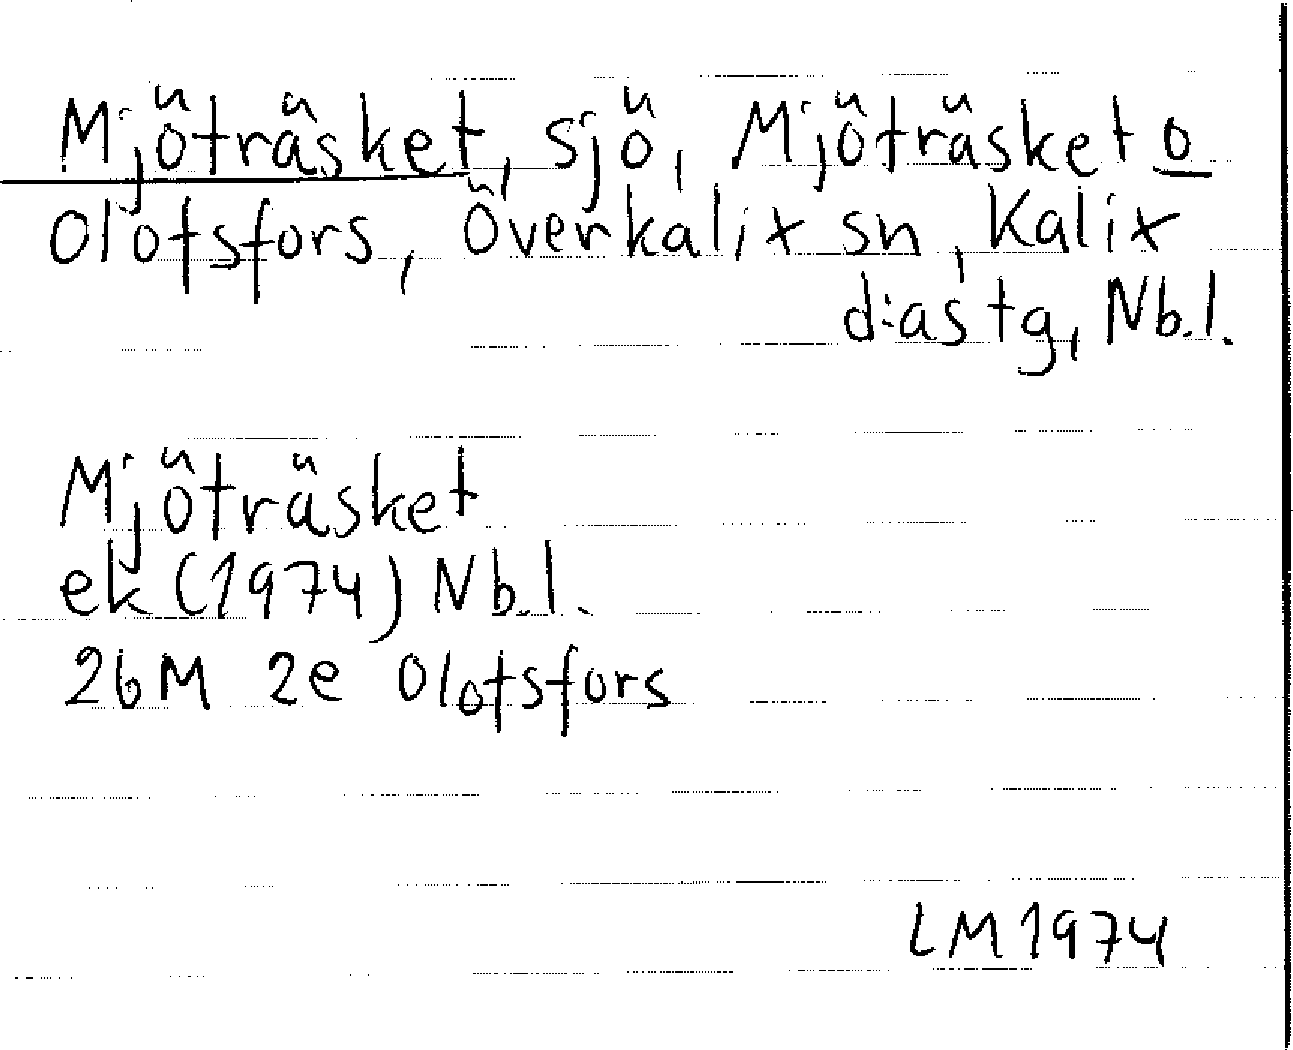 Mjöträsket, sjö, Mjöträsket o
Olofsfors, Överkalix sn, Kalix
d:as tg, Nb.l.
Mjöträsket
ek (1974) Nb.l.
26M 2e Olofsfors
LM 1974